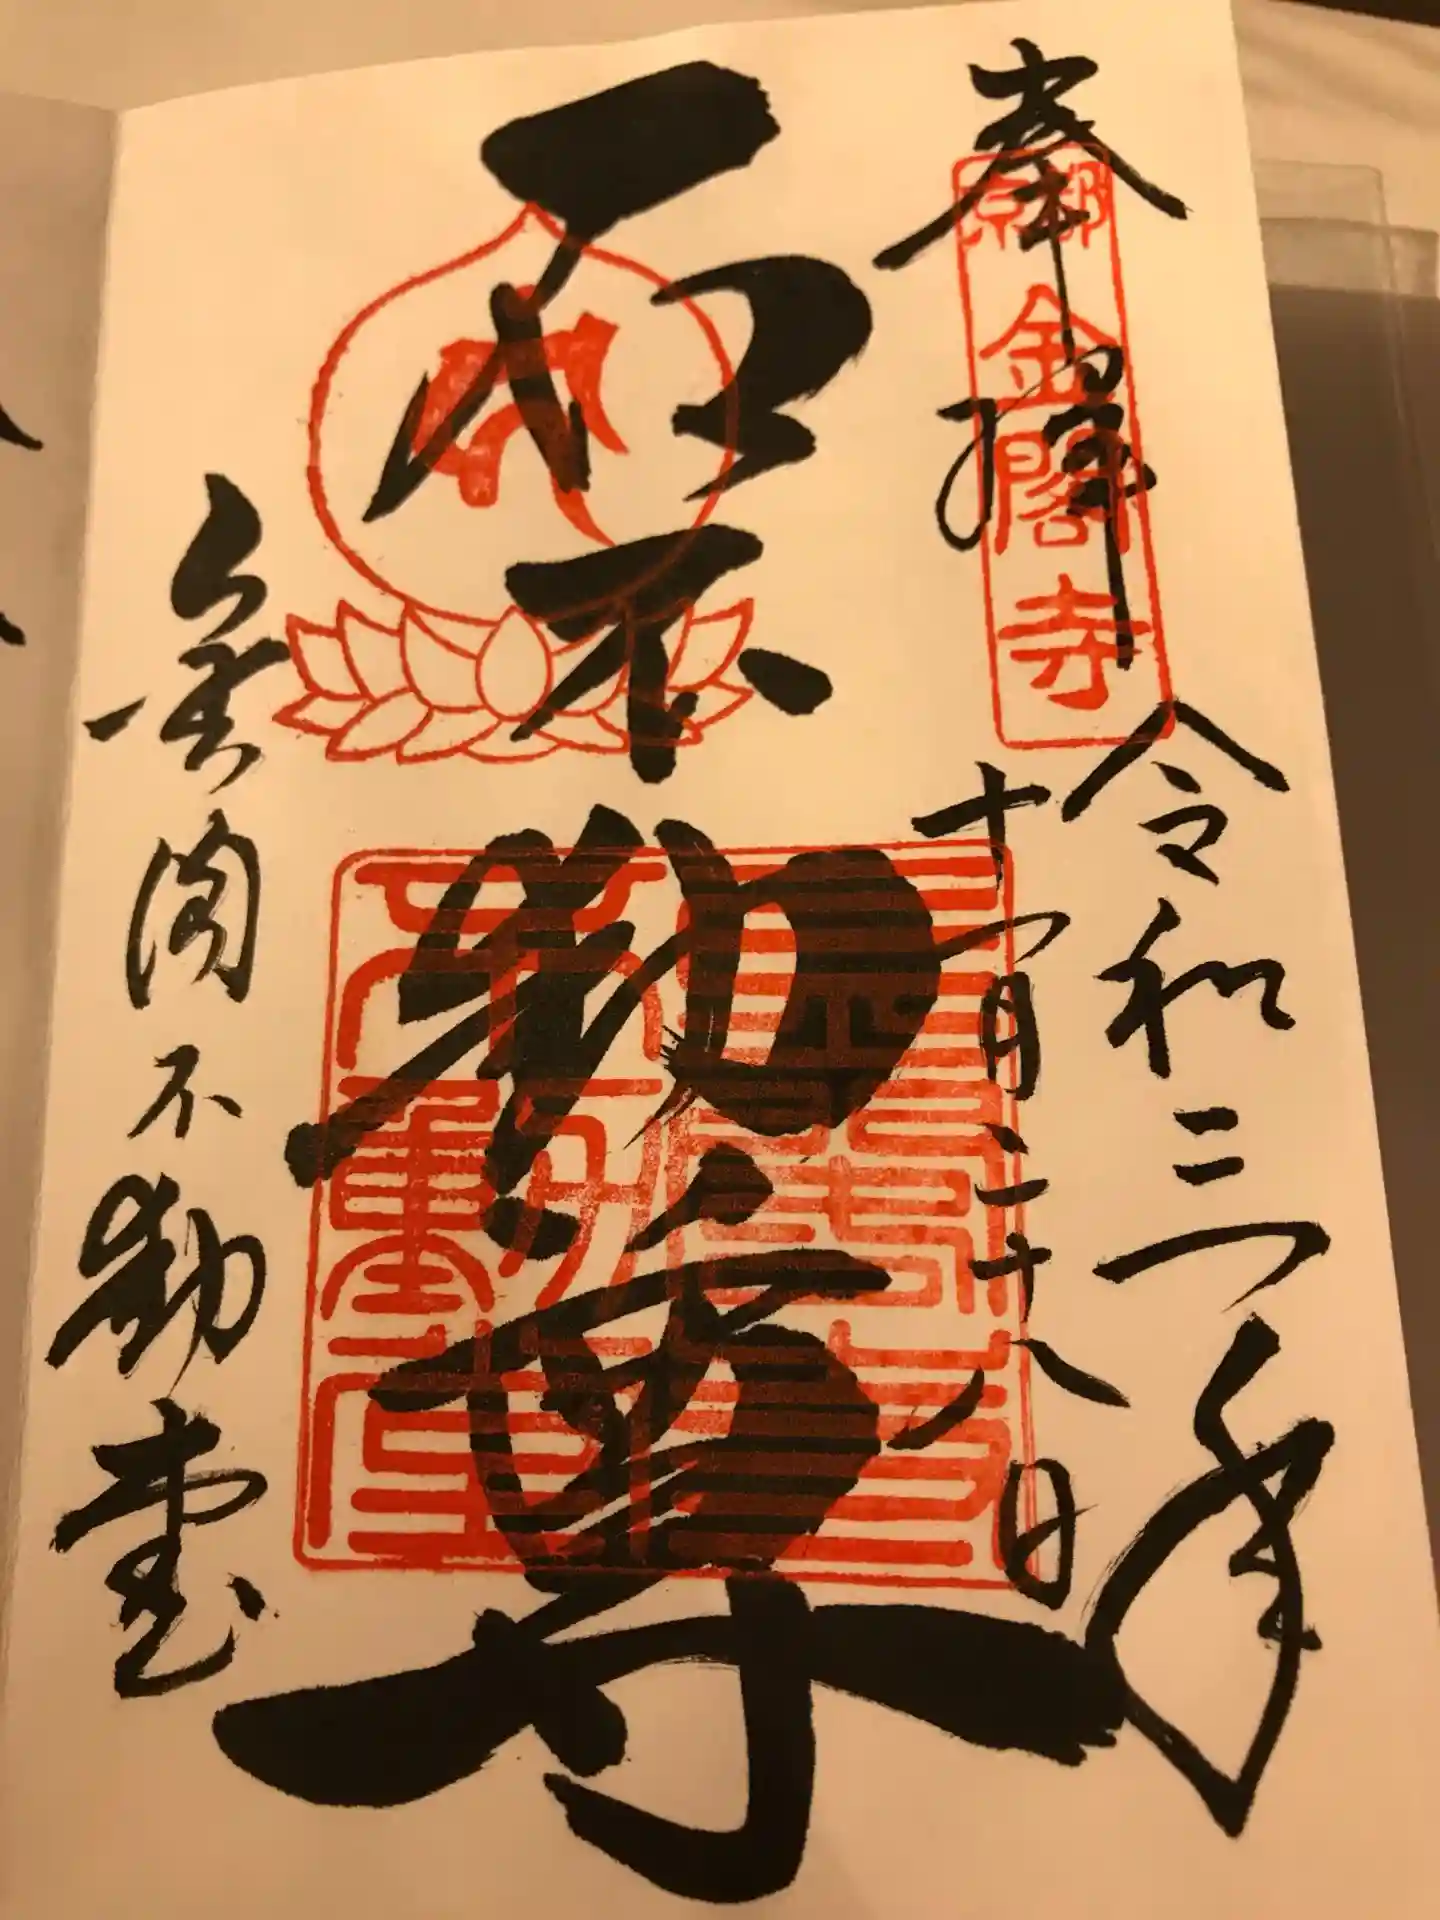 奉拝
京都
金閣寺
令和三年
十一月二十八日
石不動尊
金閣不動堂
不動堂